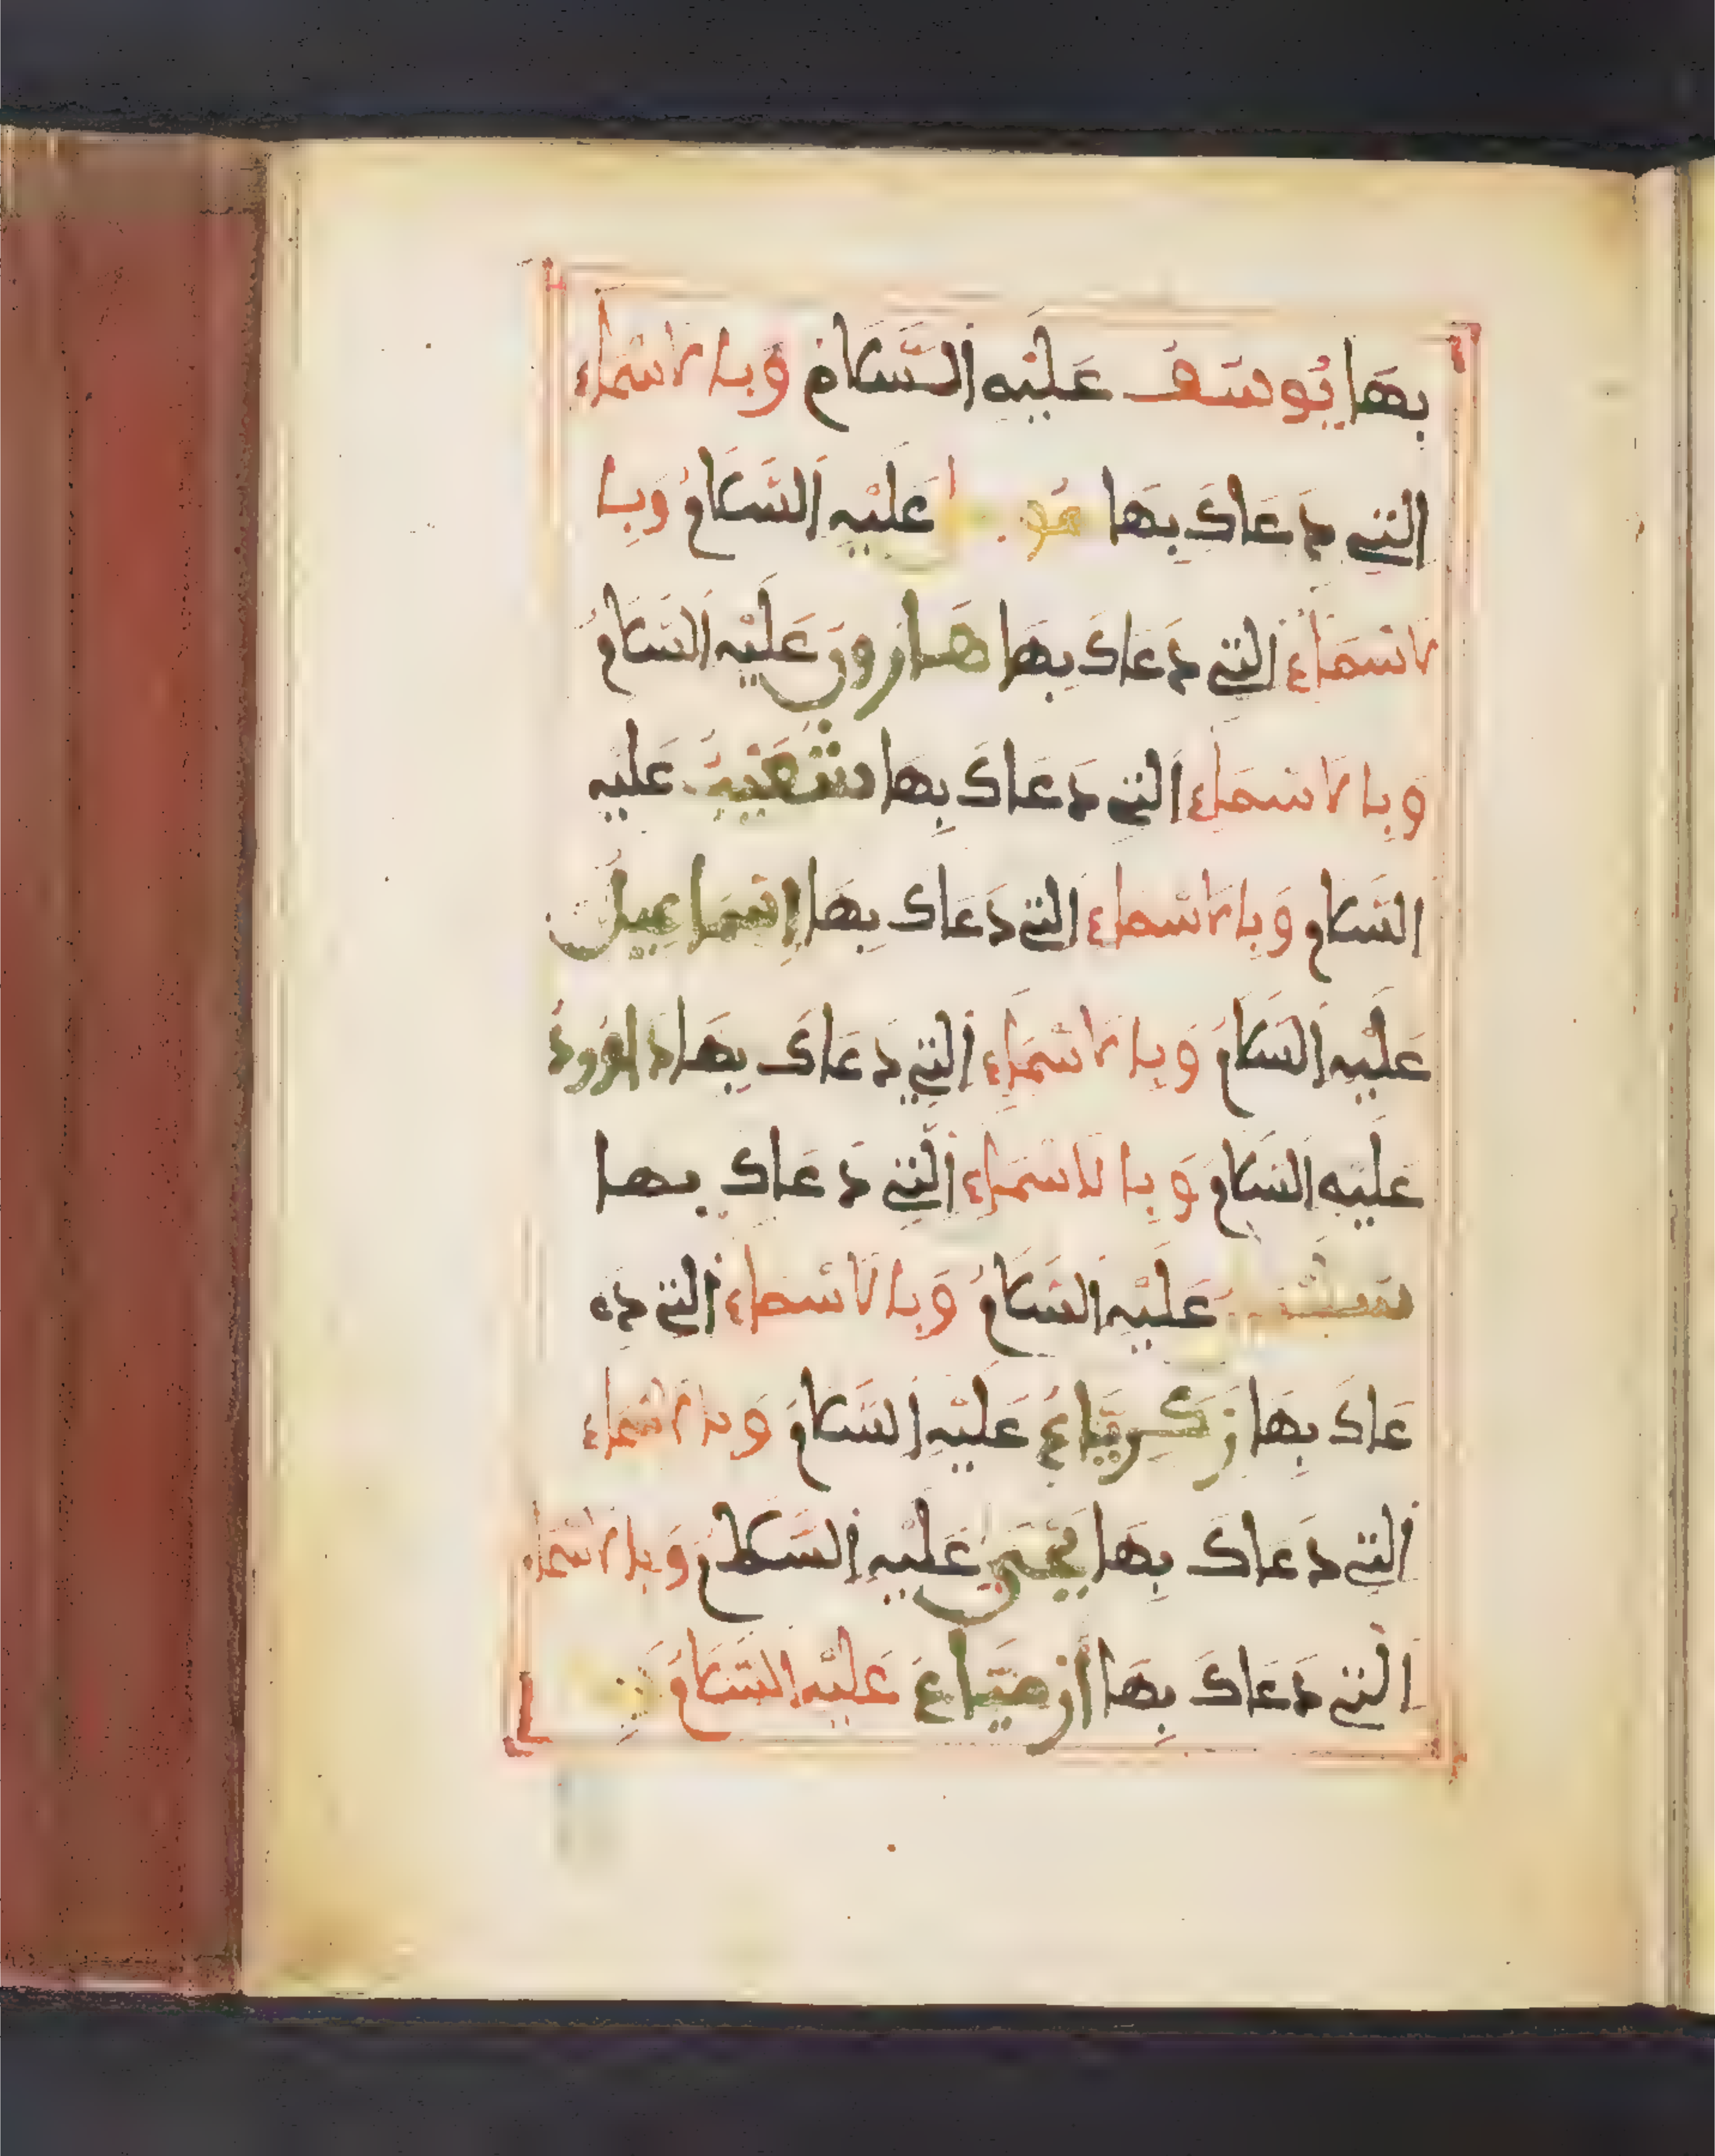 بِهَا يُوسُفُ عَلَيْهِ السَّلَامُ وَبِالاسْمَاءِ
الَّتِي دَعَاكَ بِهَا عَلَيْهِ السَّلَامُ وَبِا
لاسْمَاءِ الَّتِي دَعَاكَ بِهَا هَارُونُ عَلَيْهِ السَّلَامُ
وَبِالاسْمَاءِ الَّتِي دَعَاكَ بِهَا شُعَيْبُ عَلَيْهِ
السَّلَام وَبِالاسْمَاءِ الَّتِي دَعَاكَ بِهَا إِسْمَاعِيلُ
عَلَيْهِ السَّلَامُ وَبِالاسْمَاءِ الَّتِي دَعَاكَ بِهَا دَاوُودُ
عَلَيْهِ السَّلَامُ وَبِالاسْمَاءِ الَّتِي دَعَاكَ بِهَا
عَلَيْهِ السَّلَامُ وَبِالاسْمَاءِ الَّتِي دَ
عَاكَ بِهَا زَكَرِيَّاءُ عَلَيْهِ السَّلَامُ وَبِالاسْمَاءِ
الَّتِي دَعَاكَ بِهَا يَحْيَى عَلَيْهِ السَّلَامُ وَبِالاسْمَاءِ
الَّتِي دَعَاكَ بِهَا أَرْمِيَّاءُ عَلَيْهِ السَّلَامُ